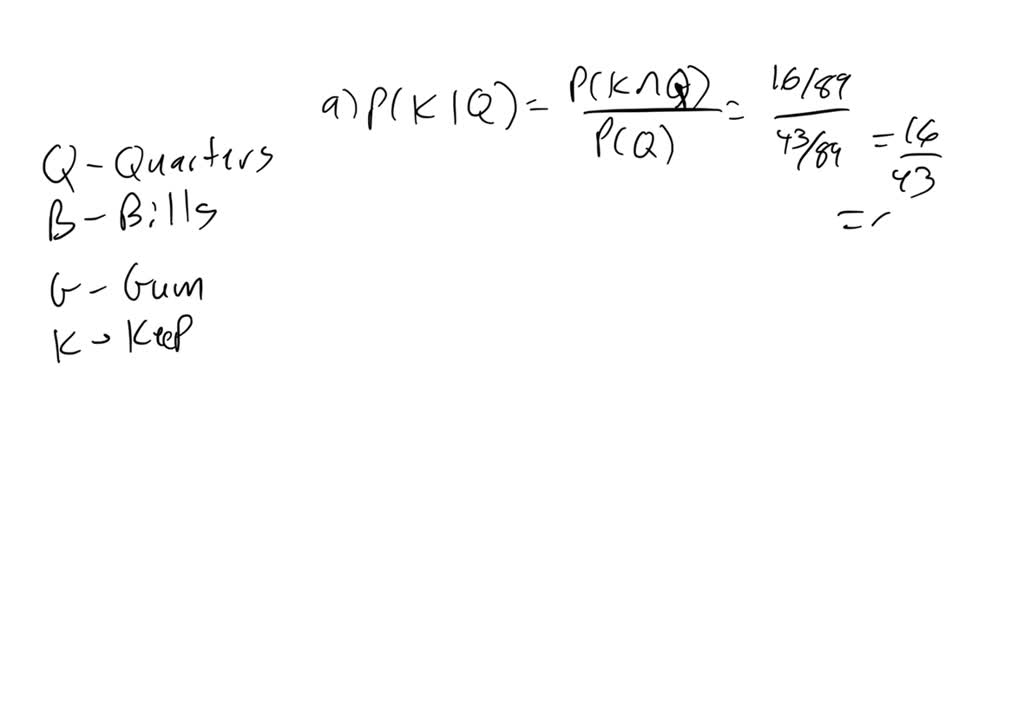 a) P(K|Q) = P(K∩Q) / P(Q) = 16/89 / 43/89 = 16/43
=
Q - Quarters
B - Bills
G - Gum
K - Keep